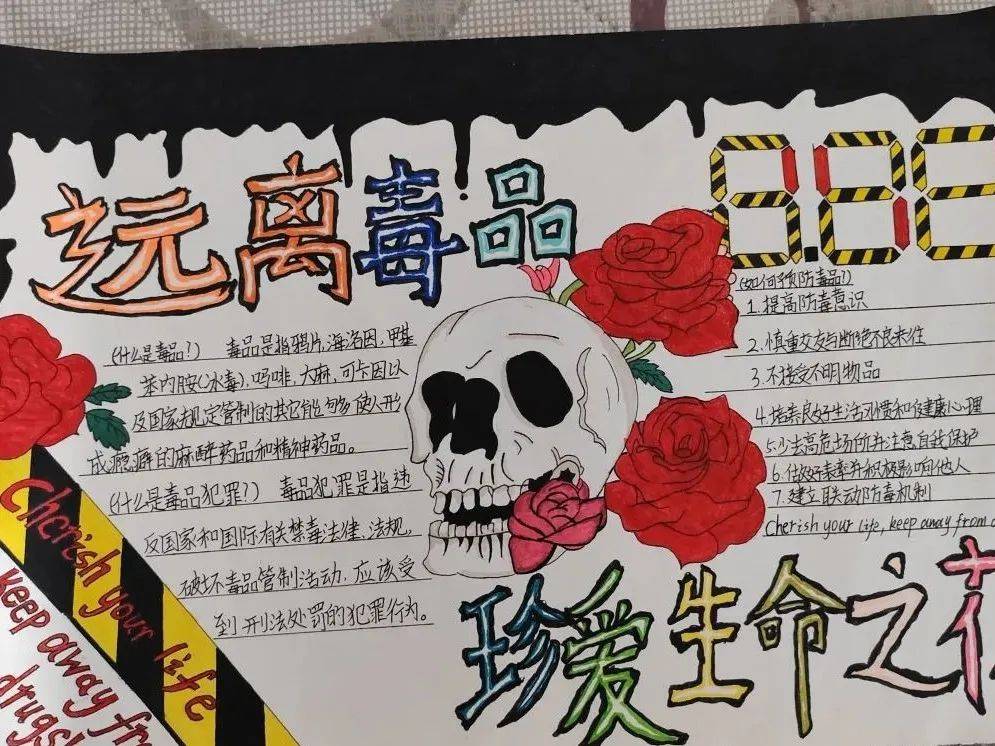 远离毒品
(什么是毒品?) 毒品是指鸦片,海洛因,甲基
苯丙胺(冰毒),吗啡,大麻,可卡因以
及国家规定管制的其它能够使人形
成瘾癖的麻醉药品和精神药品。
(什么是毒品犯罪?) 毒品犯罪是指违
反国家和国际有关禁毒法律、法规,
破坏毒品管制活动,应该受
到刑法处罚的犯罪行为。
(如何预防毒品?)
1.提高防毒意识
2.慎重交友与断绝不良来往
3.不接受不明物品
4.培养良好生活习惯和健康心理
5.少去高危场所并注意自我保护
6.做好表率并积极影响他人
7.建立联动防毒机制
Cherish your life, keep away from
珍爱生命之花
Cherish your life
keep away from
drugs